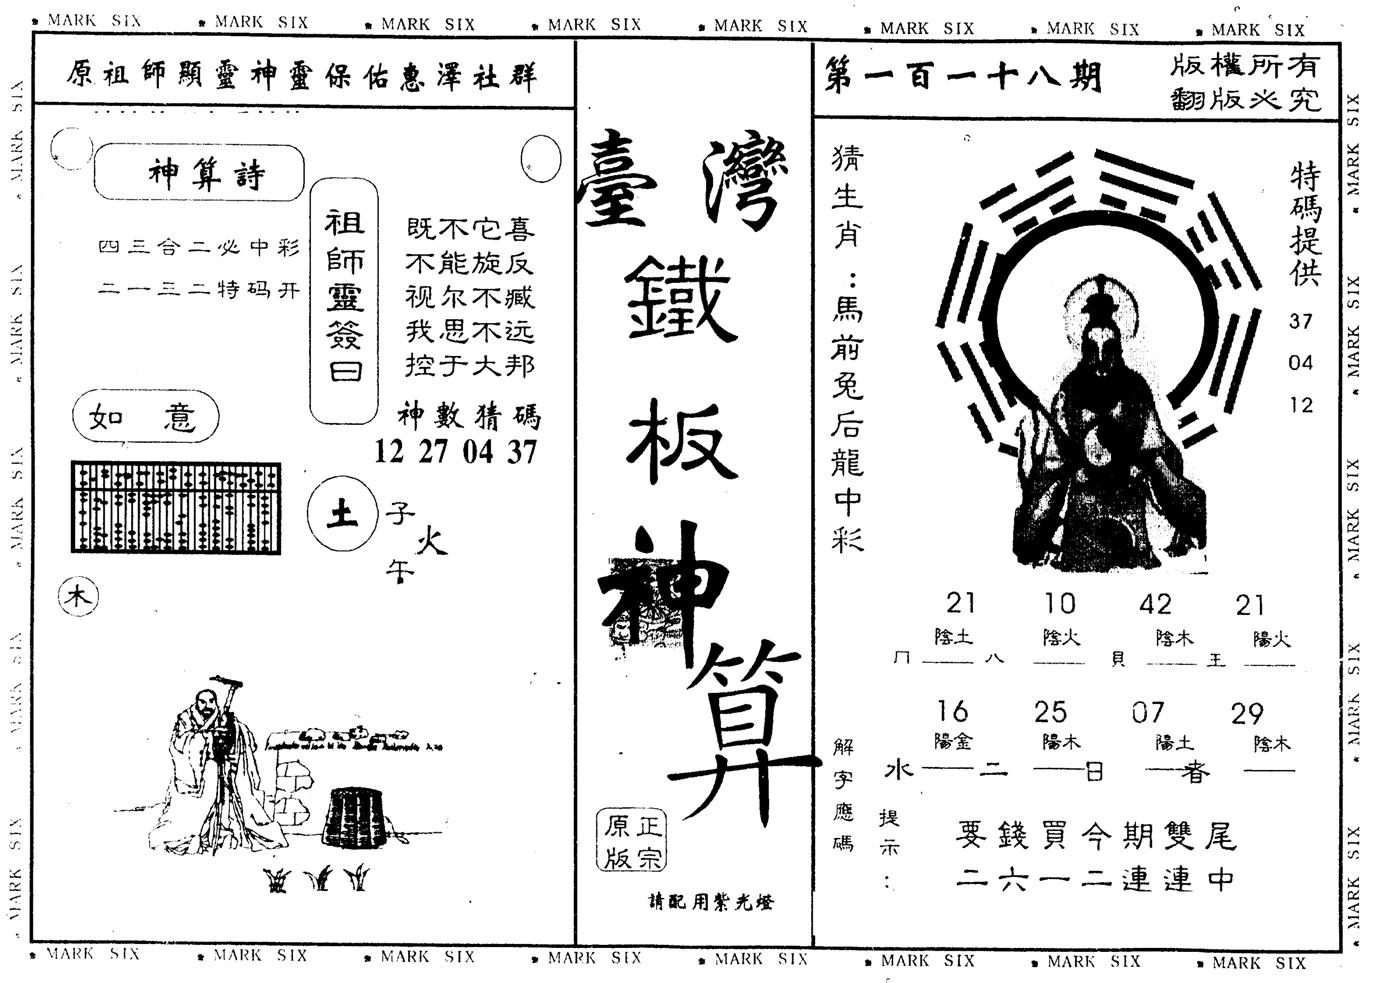 MARK SIX MARK SIX MARK SIX MARK SIX MARK SIX MARK SIX MARK SIX MARK SIX
原祖師顯靈神靈保佑惠澤社群
神算詩
四三合二必中彩
二一三二特码开
祖師靈簽曰
既不它喜
不能旋反
视尔不臧
我思不远
控于大邦
神數猜碼
12 27 04 37
如意
土
子
火
午
木
臺灣
鐵
板
神
算
正宗
原版
請配用紫光燈
第一百一十八期
版權所有
翻版必究
猜生肖：馬前兔后龍中彩
特碼提供
37
04
12
21 10 42 21
陰土 陰火 陰木 陽火
冂 八 貝 王
16 25 07 29
陽金 陽木 陽土 陰木
水 二 日 者
解字應碼
提示：
要錢買今期雙尾
二六一二連連中
MARK SIX MARK SIX MARK SIX MARK SIX MARK SIX MARK SIX MARK SIX MARK SIX
MARK SIX MARK SIX MARK SIX MARK SIX MARK SIX
MARK SIX MARK SIX MARK SIX MARK SIX MARK SIX